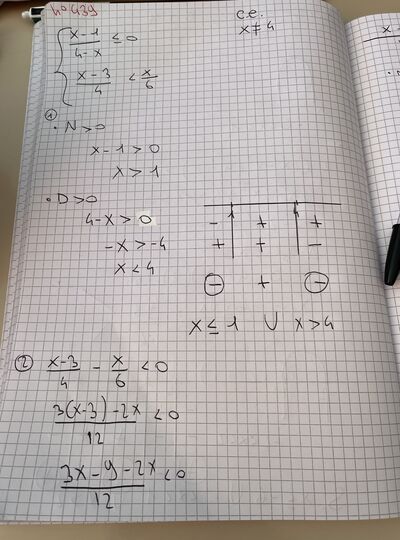 n°439
c.e.
x≠4
{ (x-1)/(4-x) ≤ 0
(x-3)/4 < x/6
①
• N>0
x-1>0
x>1
• D>0
4-x>0
-x>-4
x<4
1 4
- + +
+ + -
⊖ + ⊖
x≤1 ∪ x>4
② (x-3)/4 - x/6 <0
(3(x-3)-2x)/12 <0
(3x-9-2x)/12 <0